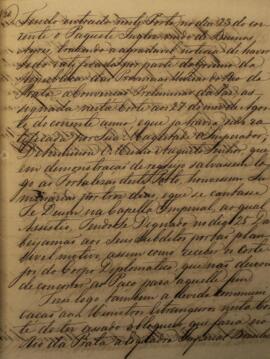 Tendo entrado neste Porto no dia 23 do cor-
rente o Paquete Inglez vindo de Buenos
Ayres, trazendo a agradavel noticia de haver
sido ratificada por parte do Governo da
Republica das Provincias Unidas do Rio da
Prata a Convenção Preliminar de Paz, as-
signada nesta Corte aos 27 do mez de Agos-
to do corrente anno, e que já havia sido ra-
tificada por Sua Magestade o Imperador,
Determinou O Mesmo Augusto Senhor, que
em demonstração de regozijo salvassem lo-
go as Fortalezas desta Corte, houvessem lu-
minarias por tres dias, e que se cantasse
Te Deum na Capella Imperial, ao qual
Assistio, Tendo-Se Dignado no dia 25 dar
beijamão aos Seus Subditos por tão plau-
sivel motivo, assim como receber o Corte-
jo do Corpo Diplomatico, que não deixou
de concorrer ao Paço para aquelle fim.
Fez-se logo tambem a devida communi-
cação aos Ministros Estrangeiros nesta Cor-
te de ter cessado o bloqueio, que fazia no
Rio da Prata a Esquadra Imperial